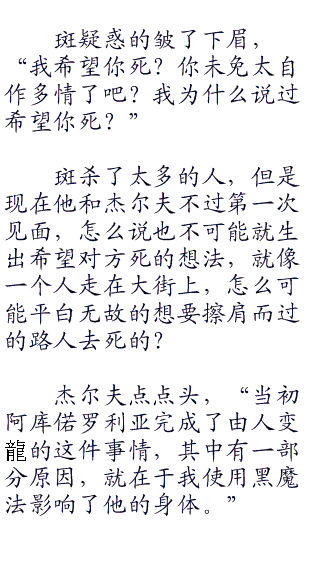 斑疑惑的皱了下眉，
“我希望你死？你未免太自
作多情了吧？我为什么说过
希望你死？”
斑杀了太多的人，但是
现在他和杰尔夫不过第一次
见面，怎么说也不可能就生
出希望对方死的想法，就像
一个人走在大街上，怎么可
能平白无故的想要擦肩而过
的路人去死的？
杰尔夫点点头，“当初
阿库偌罗利亚完成了由人变
龍的这件事情，其中有一部
分原因，就在于我使用黑魔
法影响了他的身体。”